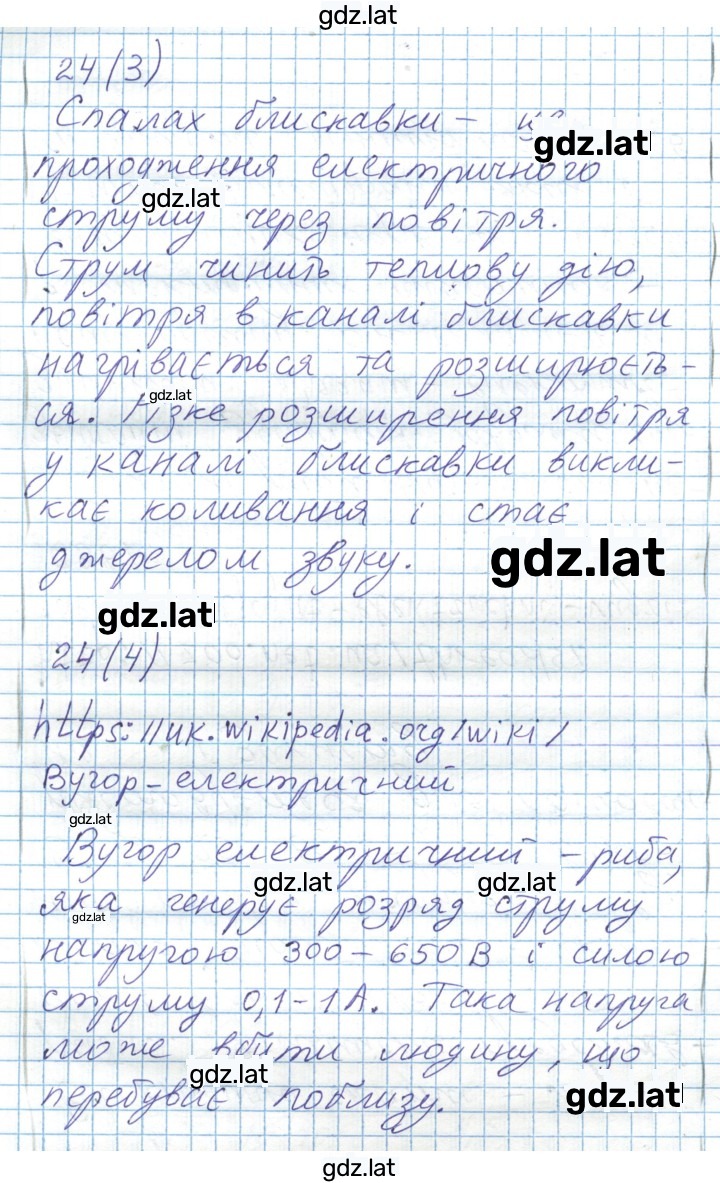 gdz.lat
24(3)
Спалах блискавки –
gdz.lat
проходження електричного
gdz.lat
струму через повітря.
Струм чинить теплову дію,
повітря в каналі блискавки
нагрівається та розширюєть-
gdz.lat
ся. Різке розширення повітря
у каналі блискавки викли-
кає коливання і стає
джерелом звуку.
gdz.lat
gdz.lat
24(4)
https://uk.wikipedia.org/wiki/
Вугор-електричний
gdz.lat
Вугор електричний – риба,
gdz.lat gdz.lat
яка генерує розряд струму
gdz.lat
напругою 300–650 В і силою
струму 0,1–1 А. Така напруга
може вбити людину, що
gdz.lat
перебуває поблизу.
gdz.lat
gdz.lat